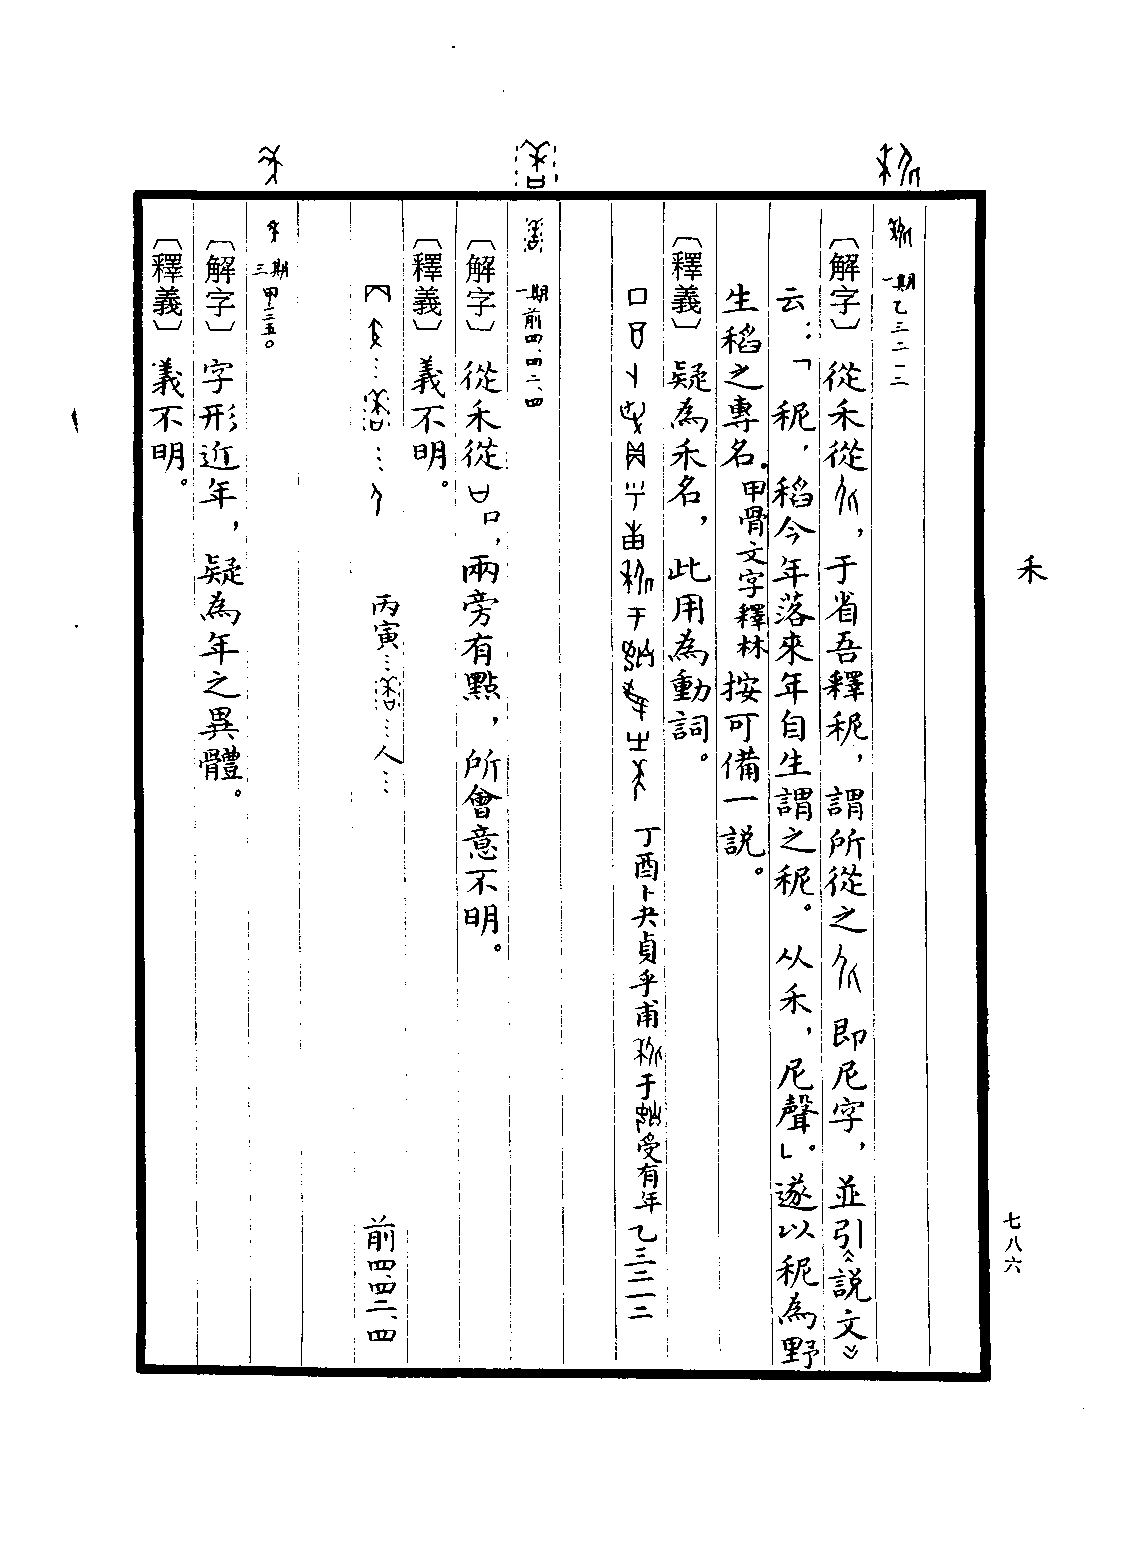 禾
七八六
一期乙三二一二
〔解字〕從禾從，于省吾釋秜，謂所從之即尼字，並引《說文》
云：「秜，稻今年落來年自生謂之秜。从禾，尼聲」。遂以秜為野
生稻之專名。甲骨文字釋林按可備一說。
〔釋義〕疑為禾名，此用為動詞。
丁酉卜央貞乎甫于受有年乙三二一二
一期前四、四二、四
〔解字〕從禾從口，兩旁有點，所會意不明。
〔釋義〕義不明。
丙寅…人… 前四、四二、四
三期甲二五〇
〔解字〕字形近年，疑為年之異體。
〔釋義〕義不明。